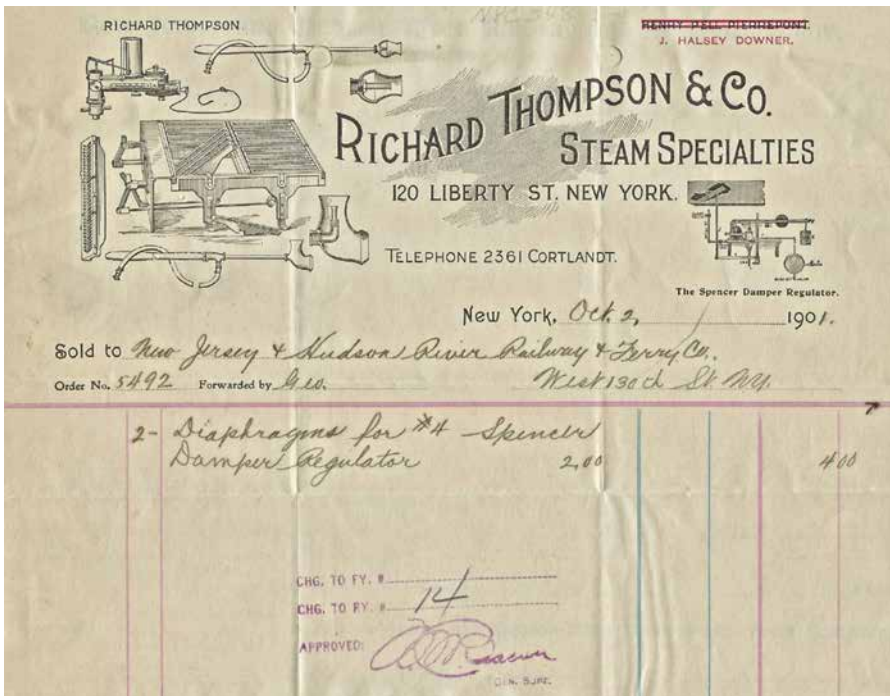 RICHARD THOMPSON.
HENRY PELL PIERREPONT.
J. HALSEY DOWNER.
RICHARD THOMPSON & CO.
STEAM SPECIALTIES
120 LIBERTY ST. NEW YORK.
TELEPHONE 2361 CORTLANDT.
The Spencer Damper Regulator.
New York, Oct. 2, 1901.
Sold to New Jersey & Hudson River Railway & Ferry Co.
Order No. 5492 Forwarded by Geo. West 130th St. NY.
2- Diaphragms for #4 Spencer
Damper Regulator 2,00 4 00
CHG. TO FY. #
CHG. TO RY. # 14
APPROVED:
GEN. SUPT.